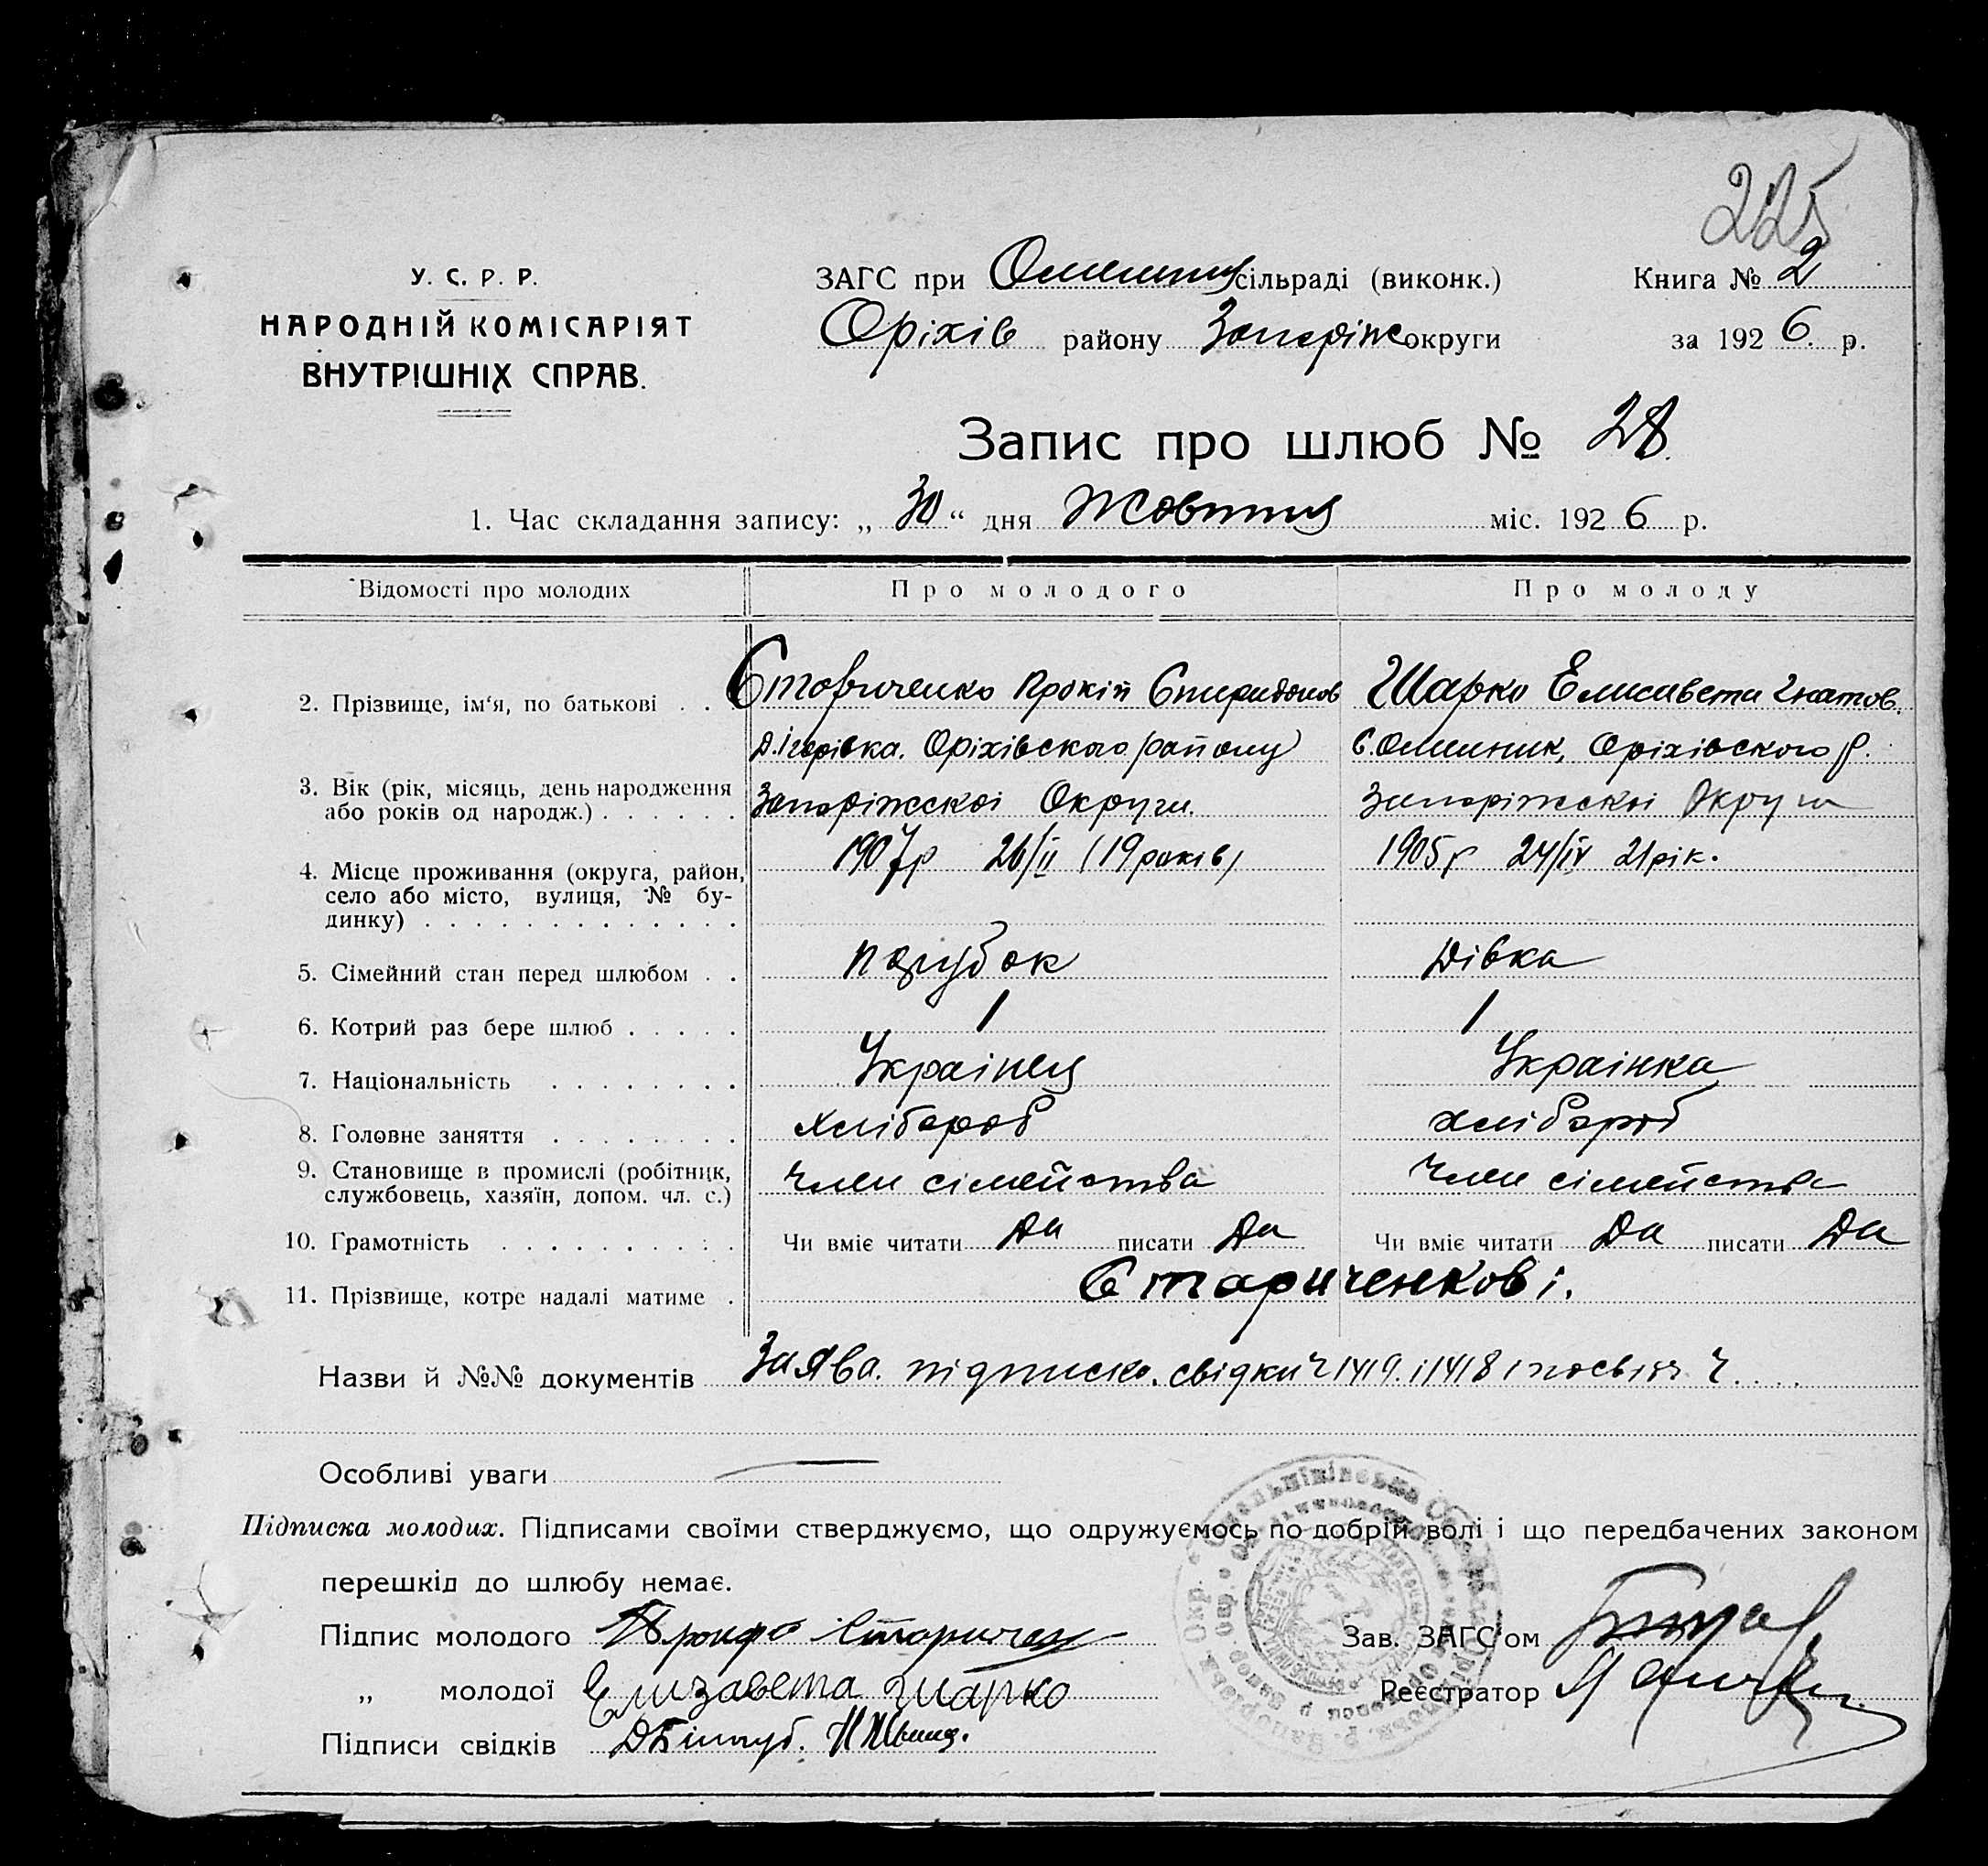 225
У. С. Р. Р.
НАРОДНІЙ КОМІСАРІЯТ
ВНУТРІШНІХ СПРАВ.
ЗАГС при сільраді (виконк.)
Оріхів району Запоріж округи
Книга № 2
за 1926 р.
Запис про шлюб № 28
1. Час складання запису: „30“ дня Жовтня міс. 1926 р.
Відомості про молодих Про молодого Про молоду
2. Прізвище, ім'я, по батькові . . Прокіп Спиридонов Шарко Елисавета Гнатов.
Оріхівского району с. Омельник, Оріхівского р.
3. Вік (рік, місяць, день народження
або років од народж.) . . . . . . Запоріжскоі Округи. Запоріжскоі Округи
1907р 26/II (19 років) 1905р 24/IV 21 рік.
4. Місце проживання (округа, район,
село або місто, вулиця, № бу-
динку) . . . . . . . . . . . . .
5. Сімейний стан перед шлюбом . . парубок Дівка
6. Котрий раз бере шлюб . . . . . 1 1
7. Національність . . . . . . . . Украінец Украінка
8. Головне заняття . . . . . . . . Хлібороб хлібороб
9. Становище в промислі (робітник,
службовець, хазяїн, допом. чл. с.) Член сімейства Член сімейства
10. Грамотність . . . . . . . . . . Чи вміє читати Да писати Да Чи вміє читати Да писати Да
11. Прізвище, котре надалі матиме . Стариченкові.
Назви й №№ документів Заява. підписка. свідки ч 1419. і 1418
Особливі уваги —
Підписка молодих. Підписами своїми стверджуємо, що одружуємось по добрій волі і що передбачених законом
перешкід до шлюбу немає.
Підпис молодого
Зав. ЗАГС'ом
„ молодої Елизавета Шарко
Реєстратор
Підписи свідків